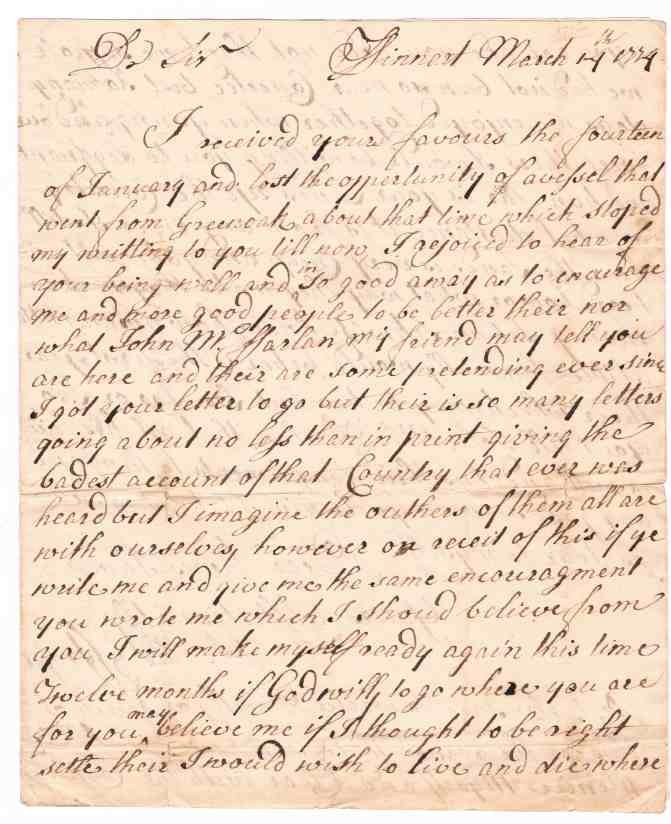 Dr Sir Kinnert March 14th 1774
I received your favours the fourteen
of January and lost the oppertunity of a vessel that
went from Greenoak about that time which stoped
my writting to you till now I rejoiced to hear of
your being well and in so good a way as to encurage
me and more good people to be better their nor
what John Mc ffarlan my friend may tell you
are here and their are some pretending ever sinc
I got your letter to go but their is so many letters
going about no less than in print giving the
badest account of that Country that ever was
heard but I imagine the outhers of them all are
with ourselves, however on receit of this if ye
write me and give me the same encouragment
you wrote me which I should believe from
you I will make myself ready again this time
Twelve months if God will, to go where you are
for you may believe me if I thought to be right
settle their I would wish to live and die where